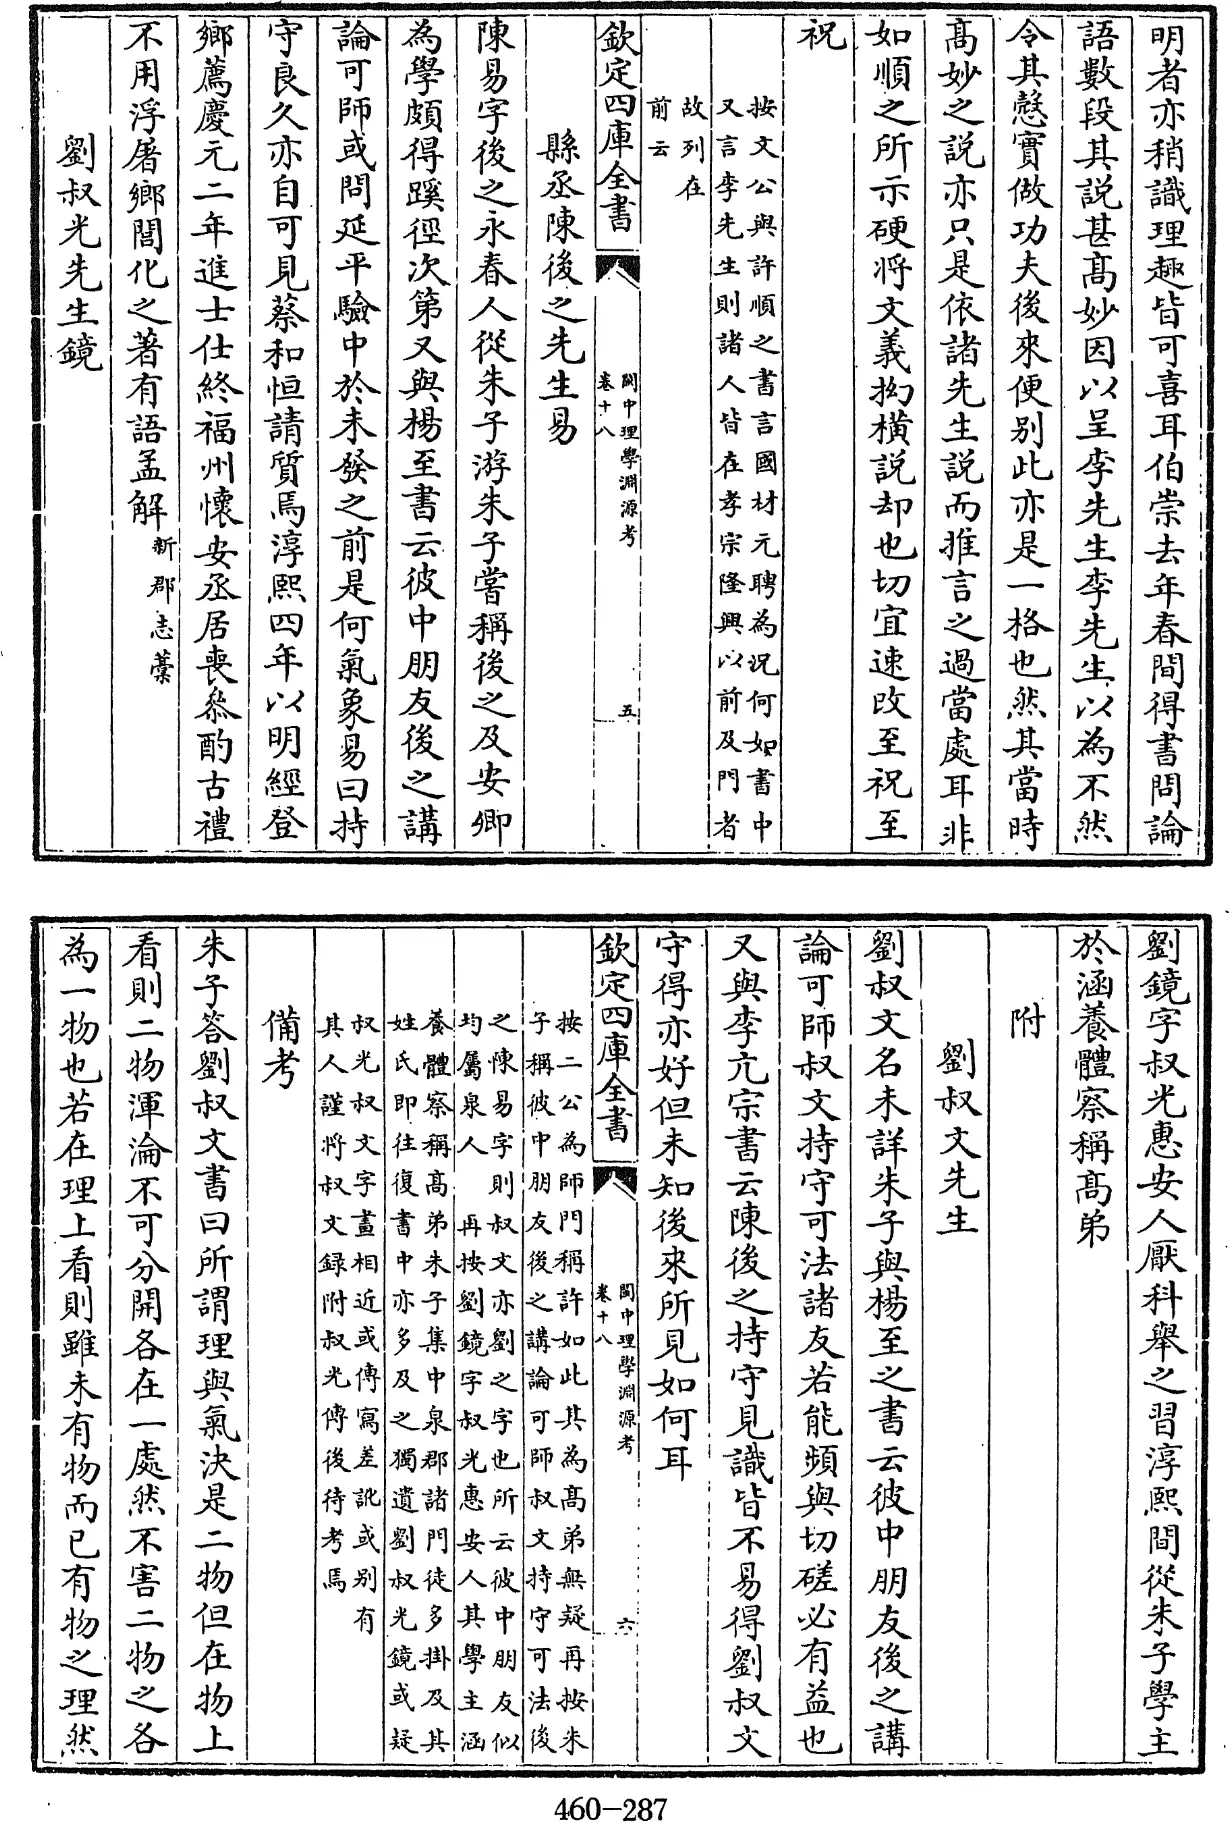 明者亦稍識理趣皆可喜耳伯崇去年春間得書問論
語數段其説甚髙妙因以呈李先生李先生以為不然
令其慤實做功夫後來便别此亦是一格也然其當時
髙妙之説亦只是依諸先生説而推言之過當處耳非
如順之所示硬將文義拗横説却也切宜速改至祝至
祝
按文公與許順之書言國材元聘為況何如書中
又言李先生則諸人皆在孝宗隆興以前及門者
故列在
前云
欽定四庫全書
閩中理學淵源考
卷十八
五
縣丞陳後之先生易
陳易字後之永春人從朱子游朱子嘗稱後之及安卿
為學頗得蹊徑次第又與楊至書云彼中朋友後之講
論可師或問延平驗中於未發之前是何氣象易曰持
守良久亦自可見蔡和恒請質焉淳熙四年以明經登
鄉薦慶元二年進士仕終福州懷安丞居喪叅酌古禮
不用浮屠鄉閭化之著有語孟解
新郡志藁
劉叔光先生鏡
劉鏡字叔光惠安人厭科舉之習淳熙間從朱子學主
於涵養體察稱髙弟
附
劉叔文先生
劉叔文名未詳朱子與楊至之書云彼中朋友後之講
論可師叔文持守可法諸友若能頻與切磋必有益也
又與李亢宗書云陳後之持守見識皆不易得劉叔文
守得亦好但未知後來所見如何耳
欽定四庫全書
閩中理學淵源考
卷十八
六
按二公為師門稱許如此其為髙弟無疑再按朱
子稱彼中朋友後之講論可師叔文持守可法後
之陳易字則叔文亦劉之字也所云彼中朋友似
均屬泉人 再按劉鏡字叔光惠安人其學主涵
養體察稱髙弟朱子集中泉郡諸門徒多掛及其
姓氏即往復書中亦多及之獨遺劉叔光鏡或疑
叔光叔文字畫相近或傳寫差訛或别有
其人謹將叔文録附叔光傳後待考焉
備考
朱子答劉叔文書曰所謂理與氣決是二物但在物上
看則二物渾淪不可分開各在一處然不害二物之各
為一物也若在理上看則雖未有物而已有物之理然
460-287